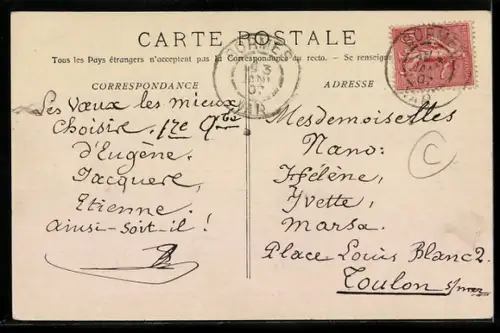 CARTE POSTALE
Tous les Pays étrangers n'acceptent pas la Correspondance au recto. Se renseigner
CORRESPONDANCE
Les vœux les mieux
choisis. 1re Qté
d'Eugène.
Jacquere,
Etienne.
ainsi-soit-il !
BORMES
VAR
ADRESSE
Mesdemoiselles
Nano:
Hélène,
Yvette,
Marsa.
Place Louis Blanc 2.
Toulon s/mer
C